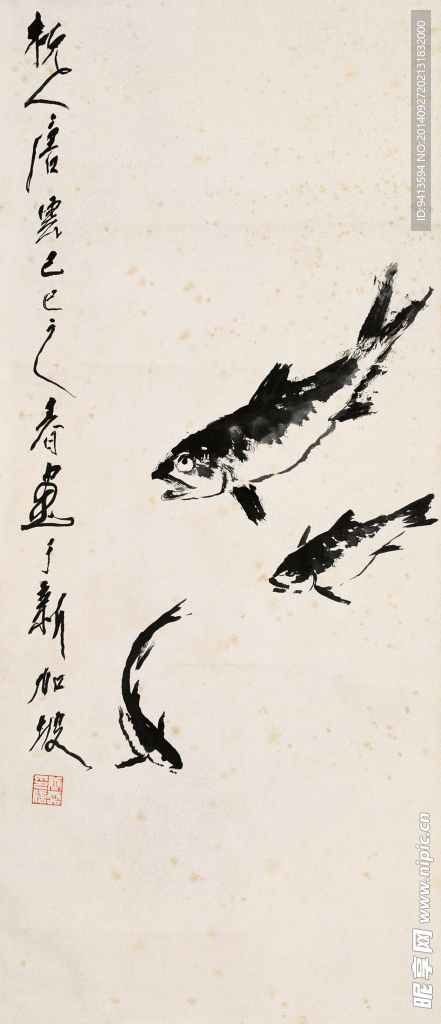 杭人唐雲己巳之春畫于新加坡
ID:9413594 NO:20140927202131832000
昵享网 www.nipic.cn